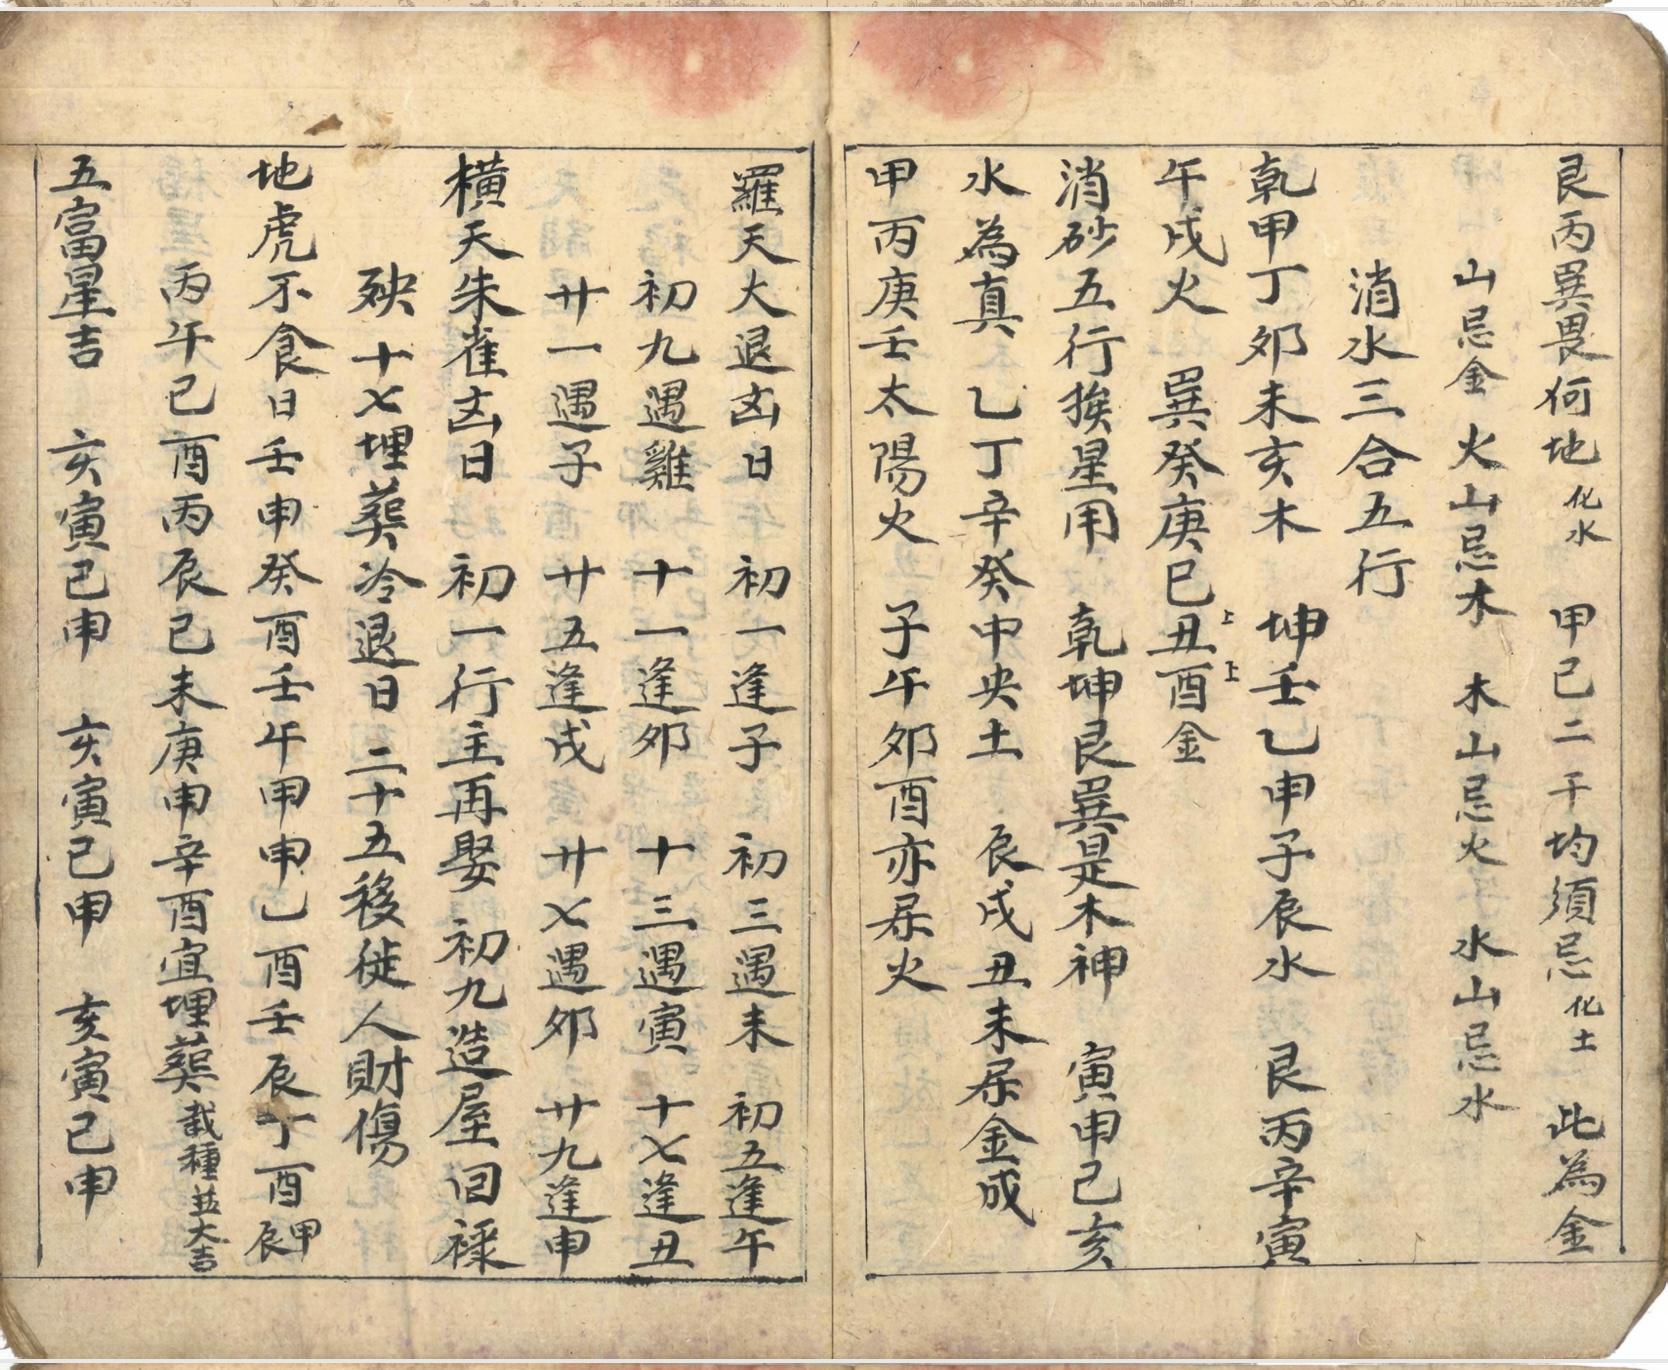 艮丙巽畏何地化水 甲己二干均須忌化土 此為金
山忌金 火山忌木 木山忌火 水山忌水
消水三合五行
乾甲丁卯未亥木 坤壬乙申子辰水 艮丙辛寅
午戌火 巽癸庚巳丑上酉上金
消砂五行挨星用 乾坤艮巽是木神 寅申己亥
水為真 乙丁辛癸中央土 辰戌丑未居金成
甲丙庚壬太陽火 子午卯酉亦居火
羅天大退凶日 初一逢子 初三遇未 初五逢午
初九遇雞 十一逢卯 十三遇寅 十七逢丑
廿一遇子 廿五逢戌 廿七遇卯 廿九逢申
橫天朱雀凶日 初一行主再娶 初九造屋回祿
殃 十七埋葬冷退日 二十五移徙人財傷
地虎不食日壬申癸酉壬午甲申乙酉壬辰丁酉甲辰
丙午己酉丙辰己未庚申辛酉宜埋葬栽種並大吉
五富星吉 亥寅己申 亥寅己申 亥寅己申